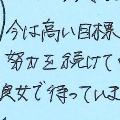 今は高い目標
努力を続けて
良女で待っていま